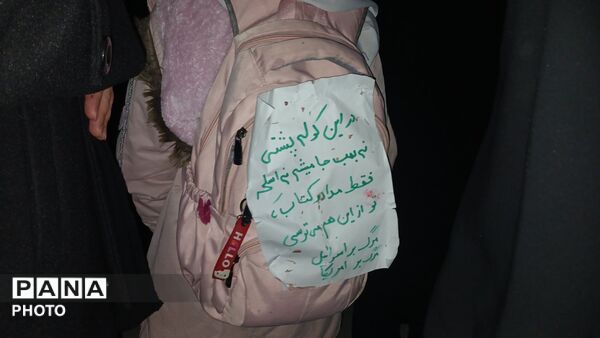 در این کوله پشتی
نه بمب جا میشه نه اسلحه
فقط مداد و کتاب
تو از این هم می‌ترسی
مرگ بر اسرائیل
مرگ بر آمریکا
HELLO
PANA
PHOTO